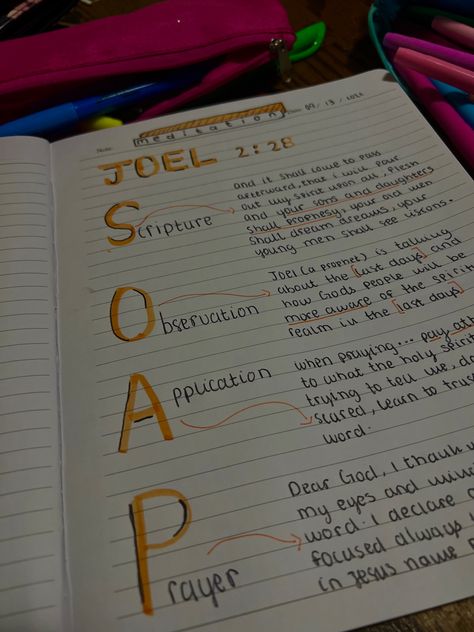 meditation
09 / 13 /
JOEL 2:28
Scripture
and it shall come to pass
afterward, that i will pour
out my spirit upon all flesh
and your sons and daughters
shall prophesy, your old men
shall dream dreams, your
young men shall see visions.
Observation
JOEL (a prophet) is talking
about the [last days] and
how Gods people will be
more aware of the spirit
realm in the [last days]
Application
when praying... pay
to what the holy
trying to tell us,
scared, learn to
word.
Prayer
Dear God, I thank
my eyes and
word. i declare
focused always
in Jesus name